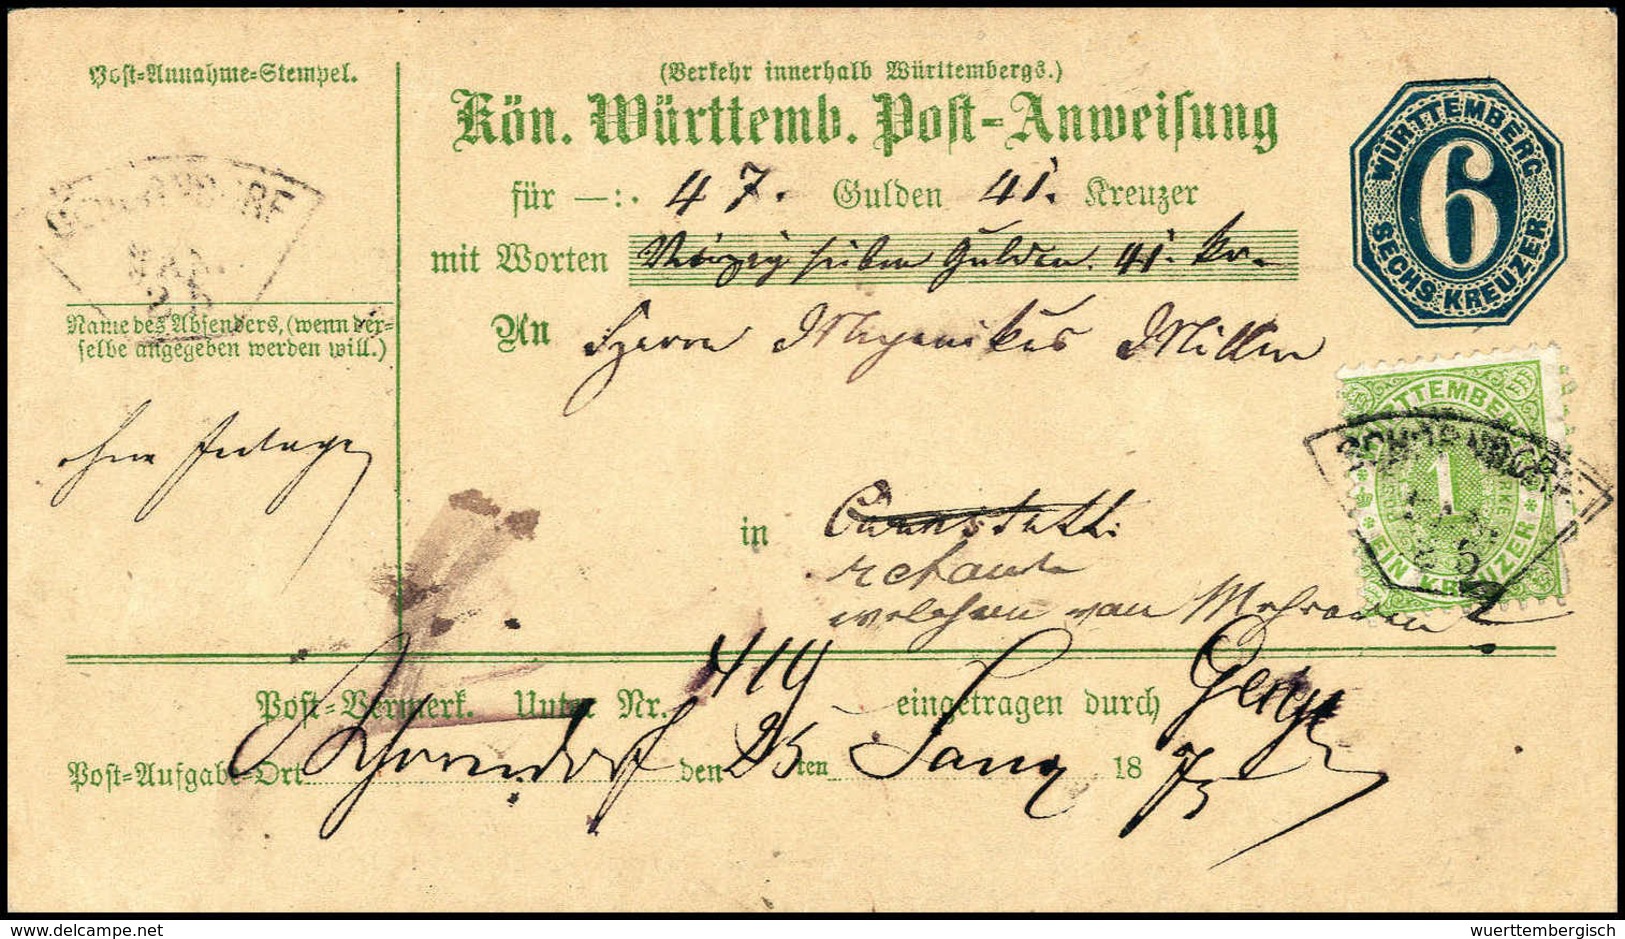 Post-Annahme-Stempel.
(Verkehr innerhalb Württembergs.)
Kön. Württemb. Post-Anweisung
WÜRTTEMBERG
6
SECHS KREUZER
für —:. 47. Gulden 41. Kreuzer
mit Worten Vierzig sieben Gulden. 41. kr.
Name des Absenders, (wenn der-
selbe angegeben werden will.)
An Herrn Miller
WÜRTTEMBERG
1
EIN KREUZER
SCHORNDORF
ohne
in Cannstatt.
retour
welchem von
Post-Vermerk. Unter Nr. 419 eingetragen durch
Post-Aufgabe-Ort Schorndorf den 25 ten Janr 18 75
delcampe.net
wuerttembergisch